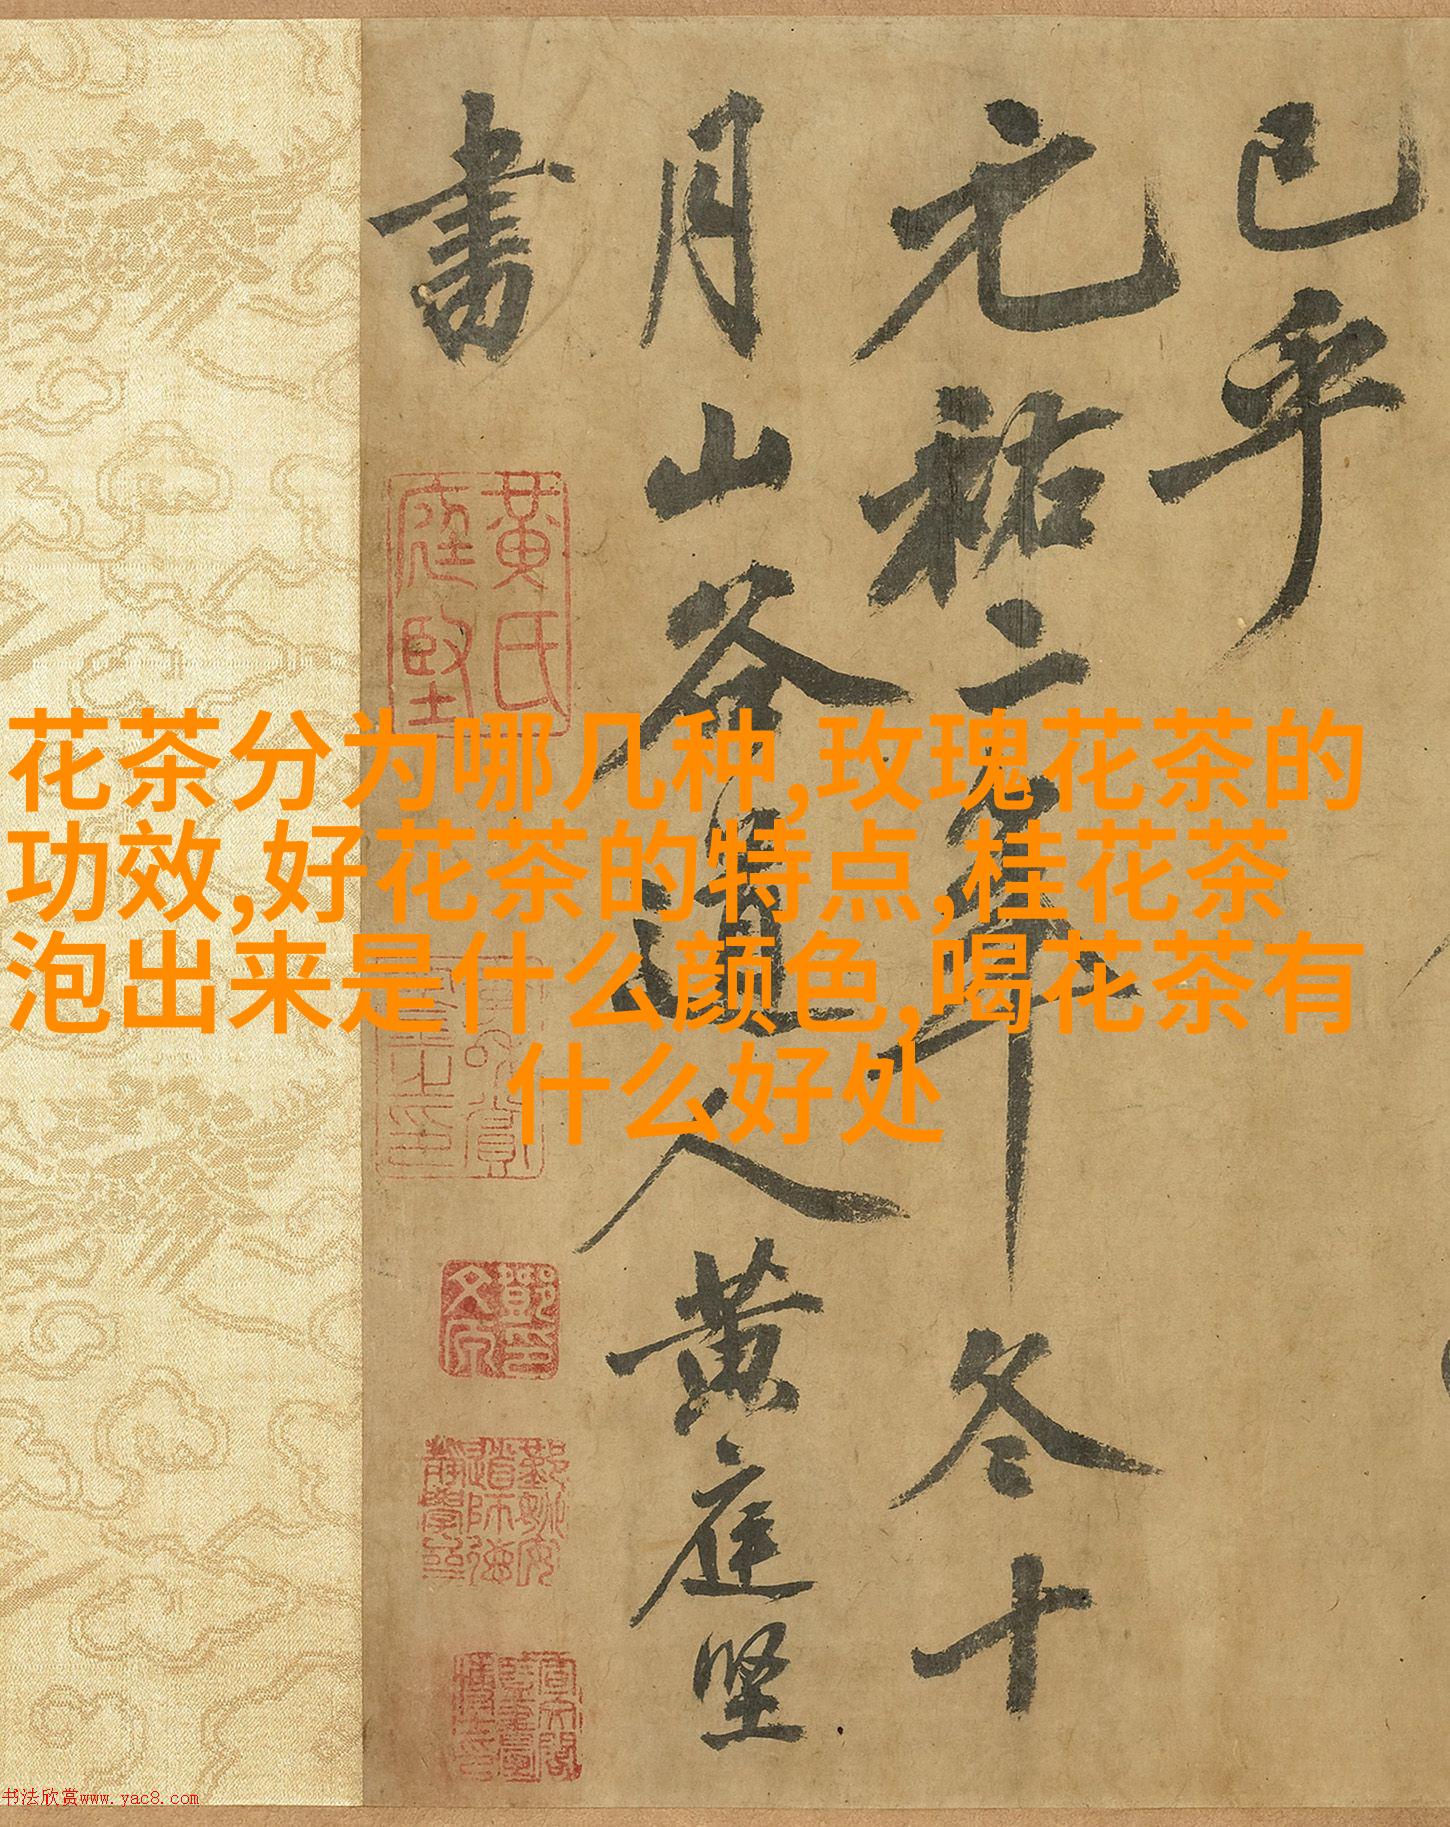 已乎
元祐二年冬十
月山谷道人黄庭坚
書
黄氏
庭堅
花茶分为哪几种,玫瑰花茶的
功效,好花茶的特点,桂花茶
泡出来是什么颜色,喝花茶有
什么好处
书法欣赏www.yac8.com